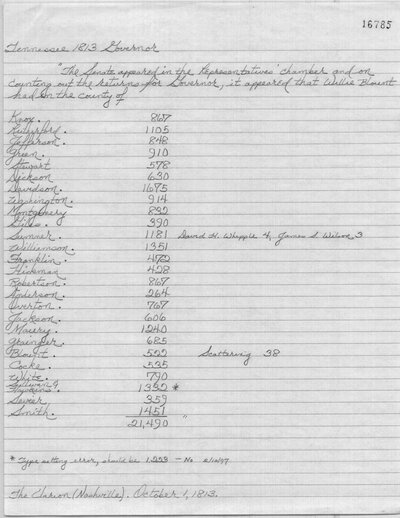 16785
Tennessee 1813 Governor
"The Senate appeared in the Representatives' chamber and on
counting out the returns for Governor, it appeared that Willie Blount
had in the county of
Knox. 867
Rutherford. 1105
Jefferson. 848
Green. 910
Stewart 578
Dickson 630
Davidson. 1675
Washington. 914
Montgomery 832
Giles. 390
Sumner. 1181 David H. Whapple 4, James S. Wilson 3
Williamson. 1351
Franklin. 472
Hickman 428
Robertson. 867
Anderson. 264
Overton. 767
Jackson. 606
Maury. 1240
Grainger 685
Blount 522 Scattering 38
Cocke. 535
White. 790
Sullivan &
Hawkins. 1332 *
Sevier 359
Smith. 1451
21,490 "
* Type setting error, should be 1,253 - No
The Clarion (Nashville). October 1, 1813.